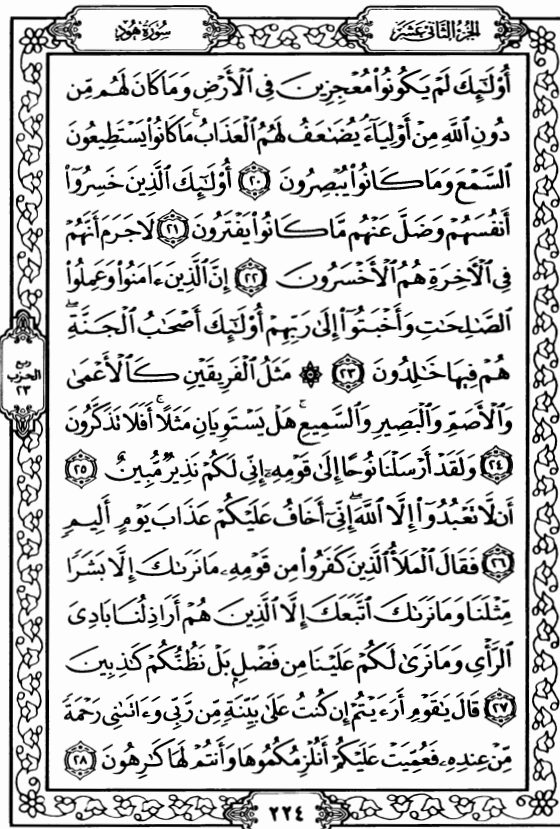 الجزء الثاني عشر
سورة هود
أُوْلَٰٓئِكَ لَمْ يَكُونُواْ مُعْجِزِينَ فِى ٱلْأَرْضِ وَمَا كَانَ لَهُم مِّن
دُونِ ٱللَّهِ مِنْ أَوْلِيَآءَۘ يُضَٰعَفُ لَهُمُ ٱلْعَذَابُۚ مَا كَانُواْ يَسْتَطِيعُونَ
ٱلسَّمْعَ وَمَا كَانُواْ يُبْصِرُونَ ٢٠ أُوْلَٰٓئِكَ ٱلَّذِينَ خَسِرُوٓاْ
أَنفُسَهُمْ وَضَلَّ عَنْهُم مَّا كَانُواْ يَفْتَرُونَ ٢١ لَا جَرَمَ أَنَّهُمْ
فِى ٱلْأَخِرَةِ هُمُ ٱلْأَخْسَرُونَ ٢٢ إِنَّ ٱلَّذِينَ ءَامَنُواْ وَعَمِلُواْ
ٱلصَّٰلِحَٰتِ وَأَخْبَتُوٓاْ إِلَىٰ رَبِّهِمْ أُوْلَٰٓئِكَ أَصْحَٰبُ ٱلْجَنَّةِۖ
هُمْ فِيهَا خَٰلِدُونَ ٢٣ ۞ مَثَلُ ٱلْفَرِيقَيْنِ كَٱلْأَعْمَىٰ
وَٱلْأَصَمِّ وَٱلْبَصِيرِ وَٱلسَّمِيعِۚ هَلْ يَسْتَوِيَانِ مَثَلًاۚ أَفَلَا تَذَكَّرُونَ
٢٤ وَلَقَدْ أَرْسَلْنَا نُوحًا إِلَىٰ قَوْمِهِۦٓ إِنِّى لَكُمْ نَذِيرٌ مُّبِينٌ ٢٥
أَن لَّا تَعْبُدُوٓاْ إِلَّا ٱللَّهَۖ إِنِّىٓ أَخَافُ عَلَيْكُمْ عَذَابَ يَوْمٍ أَلِيمٍ
٢٦ فَقَالَ ٱلْمَلَأُ ٱلَّذِينَ كَفَرُواْ مِن قَوْمِهِۦ مَا نَرَىٰكَ إِلَّا بَشَرًا
مِّثْلَنَا وَمَا نَرَىٰكَ ٱتَّبَعَكَ إِلَّا ٱلَّذِينَ هُمْ أَرَاذِلُنَا بَادِىَ
ٱلرَّأْىِ وَمَا نَرَىٰ لَكُمْ عَلَيْنَا مِن فَضْلٍۭ بَلْ نَظُنُّكُمْ كَٰذِبِينَ
٢٧ قَالَ يَٰقَوْمِ أَرَءَيْتُمْ إِن كُنتُ عَلَىٰ بَيِّنَةٍ مِّن رَّبِّى وَءَاتَىٰنِى رَحْمَةً
مِّنْ عِندِهِۦ فَعُمِّيَتْ عَلَيْكُمْ أَنُلْزِمُكُمُوهَا وَأَنتُمْ لَهَا كَٰرِهُونَ ٢٨
ربع
الحزب
٢٣
٢٢٤